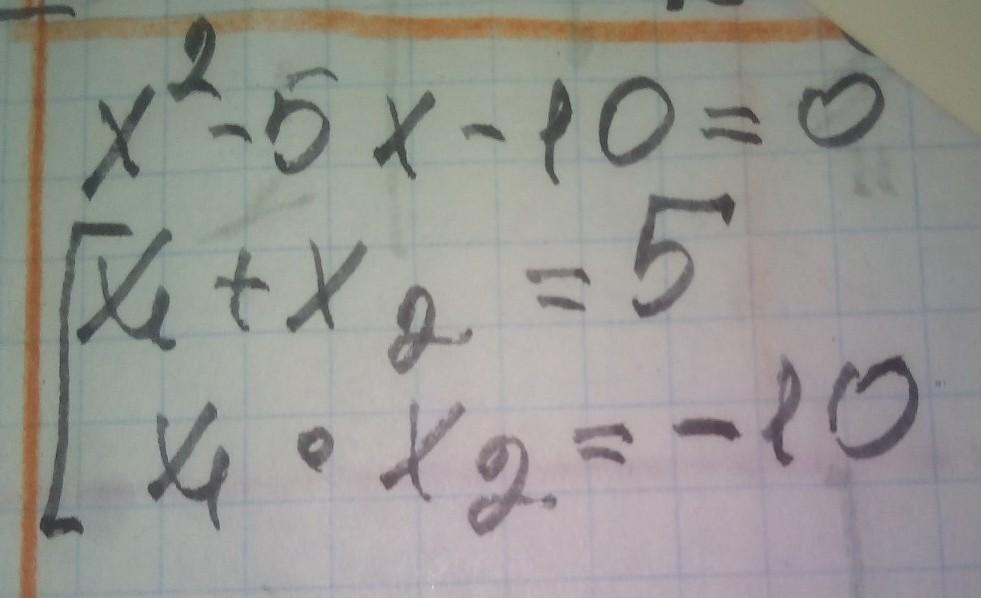 x² - 5x - 10 = 0
x₁ + x₂ = 5
x₁ · x₂ = -10